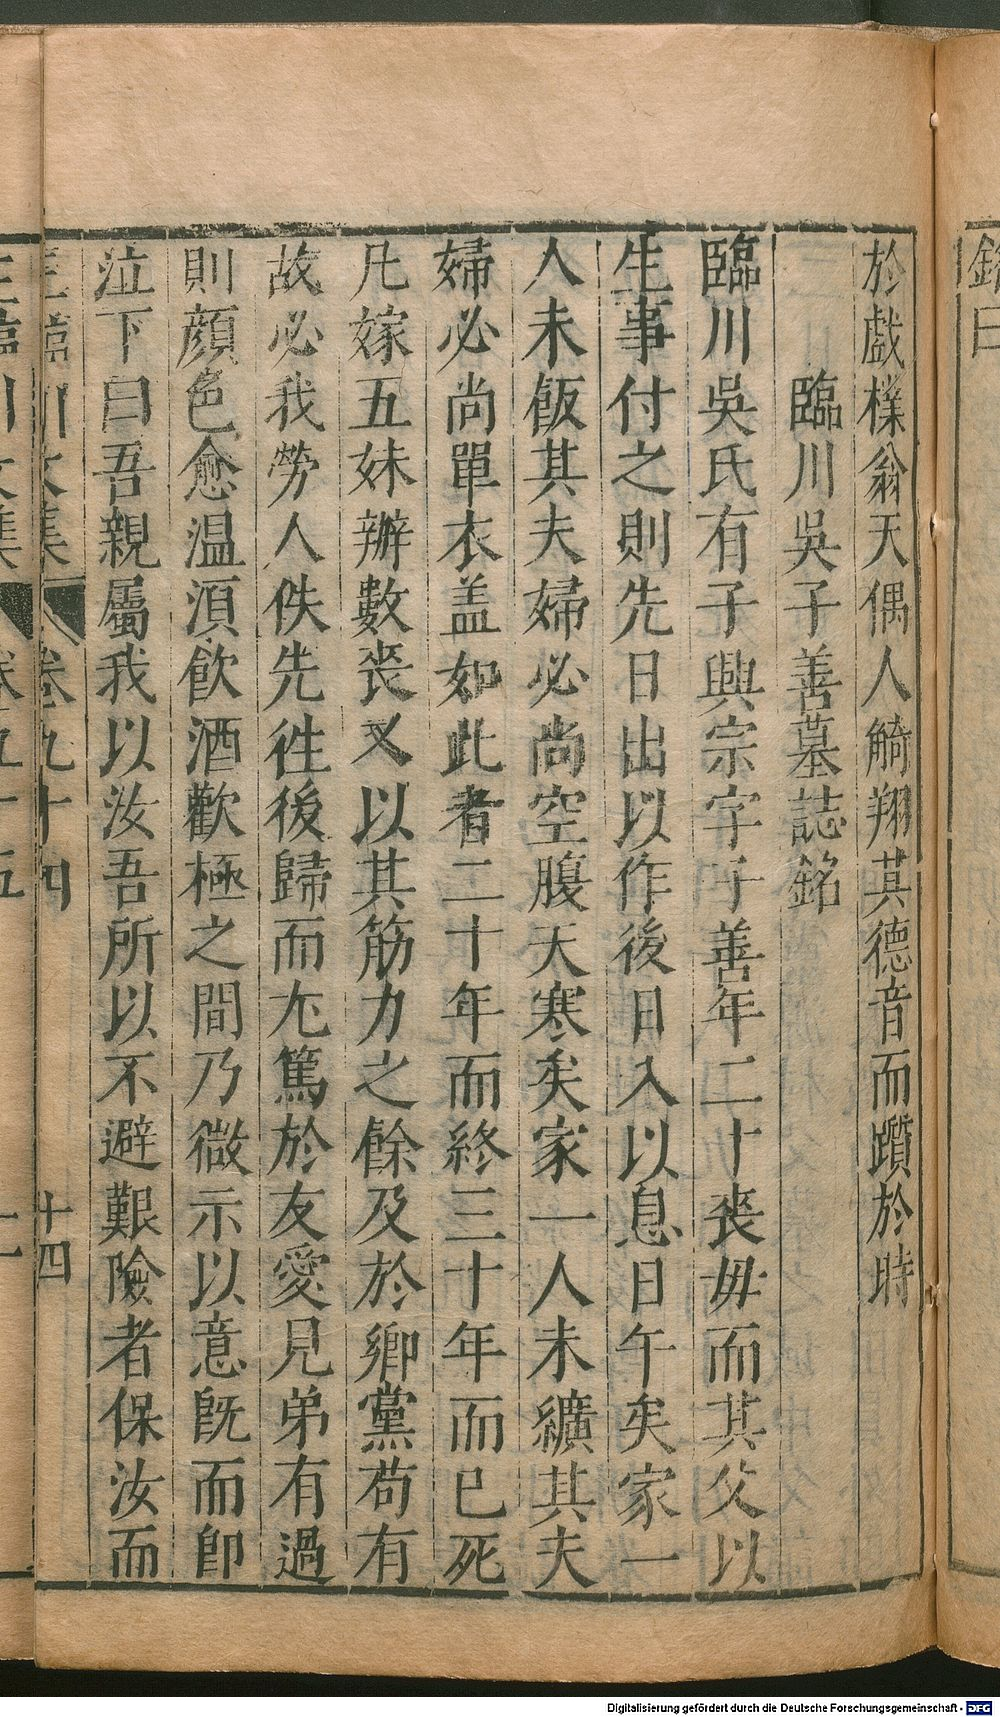 銘曰
於戲樸翁天偶人觭翔其德音而躓於時
臨川吳子善墓誌銘
臨川吳氏有子興宗字子善年二十喪毋而其父以
生事付之則先日出以作後日入以息日午矣家一
人未飯其夫婦必尚空腹天寒矣家一人未纊其夫
婦必尚單衣盖如此者二十年而終三十年而巳死
凡嫁五妹辦數喪又以其筋力之餘及於鄉黨苟有
故必我勞人佚先徃後歸而尤篤於友愛見弟有過
則顔色愈温湏飲酒歡極之間乃微示以意旣而卽
泣下曰吾親屬我以汝吾所以不避艱險者保汝而
王臨川文集 卷九十四 十四